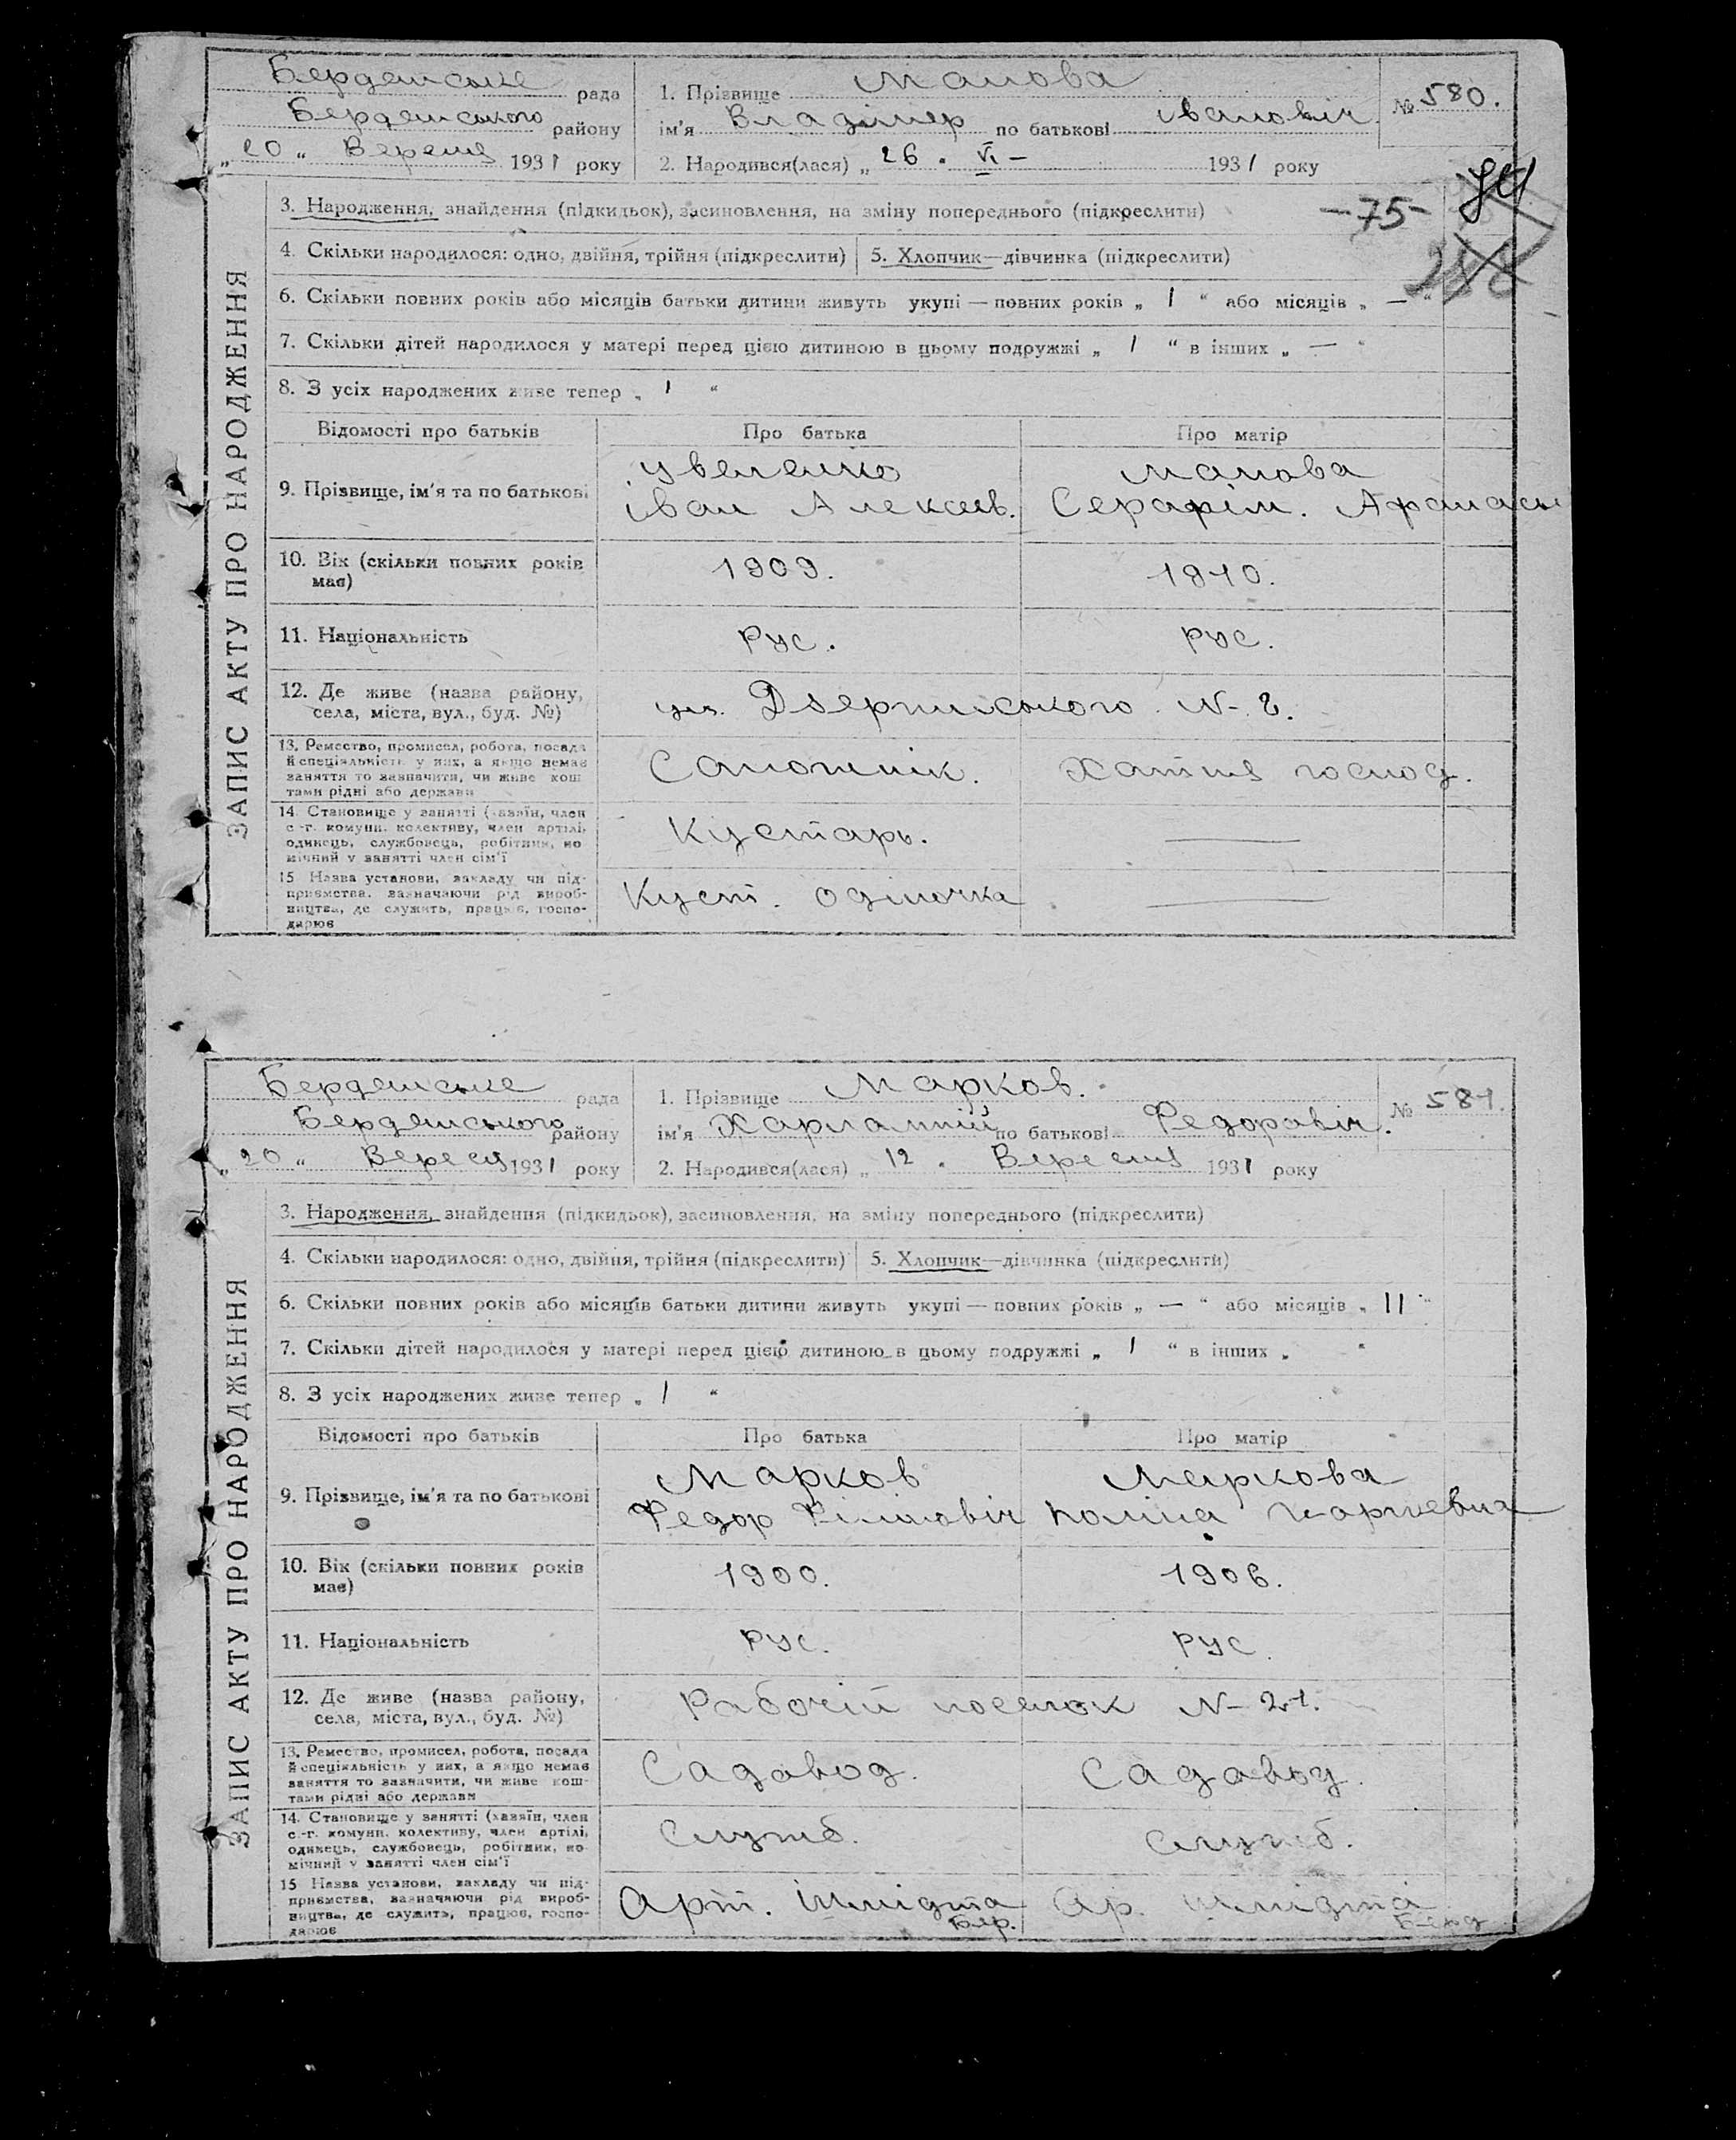 Бердянське рада
Бердянського району
„20“ Вересня 1931 року
1. Прізвище Манова
ім'я Владімер по батькові івановіч.
2. Народився(лася) „26. VI - 1931 року
№ 580.
ЗАПИС АКТУ ПРО НАРОДЖЕННЯ
3. Народження, знайдення (підкидьок), засиновлення, на зміну попереднього (підкреслити)
-75-
4. Скільки народилося: одно, двійня, трійня (підкреслити)
5. Хлопчик—дівчинка (підкреслити)
6. Скільки повних років або місяців батьки дитини живуть укупі — повних років „ 1 “ або місяців „ — “
7. Скільки дітей народилося у матері перед цією дитиною в цьому подружжі „ 1 “ в інших „ — “
8. З усіх народжених живе тепер „ 1 “
Відомості про батьків
Про батька
Про матір
9. Прізвище, ім'я та по батькові
іван Алексеев.
Манова
Серафім. Афанась
10. Вік (скільки повних років
має)
1909.
1910.
11. Національність
рус.
рус.
12. Де живе (назва району,
села, міста, вул., буд. №)
ул. Дзержинського N-
13. Ремество, промисел, робота, посада
й спеціяльність у них, а якщо немає
заняття то зазначити, чи живе кош
тами рідні або держави
Сапожнік.
Хатня господ.
14. Становище у занятті (хазяїн, член
с.-г. комуни. колективу, член артілі,
одинець, службовець, робітник, по
мічний у занятті член сім'ї
Кустарь.
15 Назва установи, закладу чи під-
приємства. зазначаючи рід вироб-
ництва, де служить, працює, госпо-
дарює
Куст. одіночка
Бердянське рада
Бердянського району
„20“ Вересня 1931 року
1. Прізвище Марков.
ім'я Харлампій по батькові Федоровіч.
2. Народився(лася) „12. Вересня 1931 року
№ 581.
ЗАПИС АКТУ ПРО НАРОДЖЕННЯ
3. Народження, знайдення (підкидьок), засиновлення, на зміну попереднього (підкреслити)
4. Скільки народилося: одно, двійня, трійня (підкреслити)
5. Хлопчик—дівчинка (підкреслити)
6. Скільки повних років або місяців батьки дитини живуть укупі — повних років „ — “ або місяців „ 11 “
7. Скільки дітей народилося у матері перед цією дитиною в цьому подружжі „ 1 “ в інших „ “
8. З усіх народжених живе тепер „ 1 “
Відомості про батьків
Про батька
Про матір
9. Прізвище, ім'я та по батькові
Марков
Федор
Маркова
Поліна
10. Вік (скільки повних років
має)
1900.
1906.
11. Національність
рус.
рус.
12. Де живе (назва району,
села, міста, вул., буд. №)
Рабочій поселок N- 21.
13. Ремество, промисел, робота, посада
й спеціяльність у них, а якщо немає
заняття то зазначити, чи живе кош-
тами рідні або держави
Садовод.
Садовод.
14. Становище у занятті (хазяїн, член
с.-г. комуни. колективу, член артілі,
одинець, службовець, робітник, по-
мічний у занятті член сім'ї
Служб.
Служб.
15 Назва установи, закладу чи під-
приємства, зазначаючи рід вироб-
ництва, де служить, працює, госпо-
дарює
Арт. Шмідта
Бер.
Ар. Шмідта
Берд